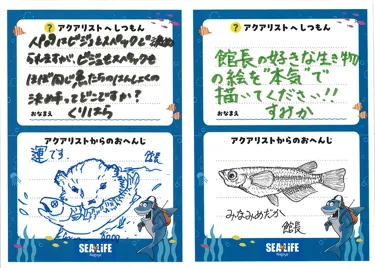 ? アクアリストへしつもん
人間はビジュとスペックで決め
られますが、ビジュもスペックも
ほぼ同じ魚たちのはんしょくの
決め手ってどこですか？
おなまえ くりはら
アクアリストからのおへんじ
運です。
館長
SEA LIFE
Nagoya
? アクアリストへしつもん
館長の好きな生き物
の絵を"本気"で
描いてください!!
おなまえ すみか
アクアリストからのおへんじ
みなみめだか
館長
SEA LIFE
Nagoya